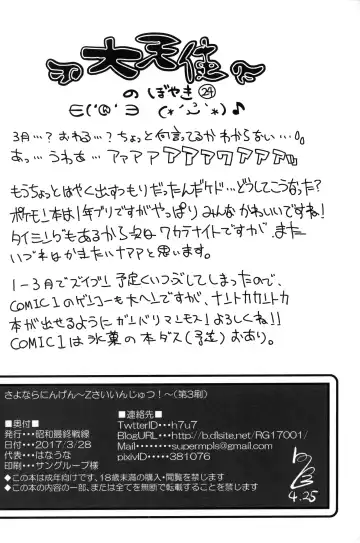 大天使
のぼやき㉔
3月…?おわる…?ちょっと何言ってるかわからない…。。
あっ…うわぁ…アァアァアアァワアァアァ。。
もうちょっとはやく出すつもりだったんボケド…どうしてこうなった?
ポケモン本は1年ブリですがやっぱりみんなかわいいですね!
タイミングもあるから次はワカテナイトですが、また
いづれはかきたいナァァと思います。
1-3月でズイブン予定くいつぶしてしまったので、
COMIC1のゲンコーも大ヘンですが、ナントカカントカ
本が出せるようにガンバリマンモス!よろしくね!!
COMIC1は氷菓の本ダス(予定)おあり。
さよならにんげん~Zさいいんじゅつ!~(第3刷)
■奥付■
発行・・・昭和最終戦線
日付・・・2017/3/28
代表・・・はなうな
印刷・・・サングループ様
■連絡先■
TwtterID・・・h7u7
BlogURL・・・http://b.dlsite.net/RG17001/
Mail・・・・・・supermpls@gmail.com
pixivID・・・381076
◆この本は成年向けです、18歳未満の購入・閲覧を禁じます
◆この本の内容の一部、または全てを無断で転載する事を禁じます
4.25